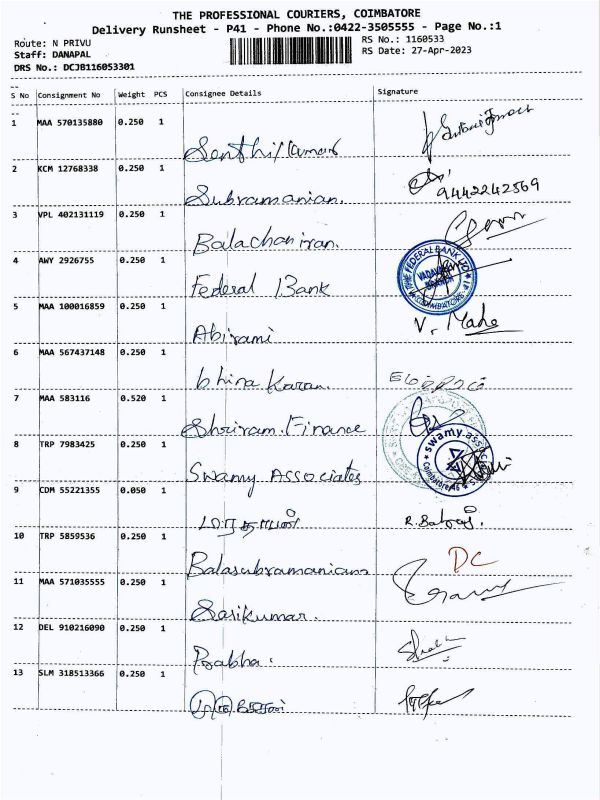 THE PROFESSIONAL COURIERS, COIMBATORE
Delivery Runsheet - P41 - Phone No.:0422-3505555 - Page No.:1
Route: N PRIVU RS No.: 1160533
Staff: DANAPAL RS Date: 27-Apr-2023
DRS No.: DCJB116053301
S No Consignment No Weight PCS Consignee Details Signature
1 MAA 570135880 0.250 1
Senthil Kumar
2 KCM 12768338 0.250 1
Subramanian. 9442242569
3 VPL 402131119 0.250 1
Balachandran.
4 AWY 2926755 0.250 1
Federal Bank THE FEDERAL BANK LTD COIMBATORE
5 MAA 100016859 0.250 1
Abirami V. Mahe
6 MAA 567437148 0.250 1
7 MAA 583116 0.520 1
Shriram. Finance
8 TRP 7983425 0.250 1
Swamy Associates Swamy Coimbatore
9 CDM 55221355 0.050 1
R. Balraj.
10 TRP 5859536 0.250 1
Balasubramaniams DC
11 MAA 571035555 0.250 1
Sasikumar.
12 DEL 910216090 0.250 1
Prabha.
13 SLM 318513366 0.250 1